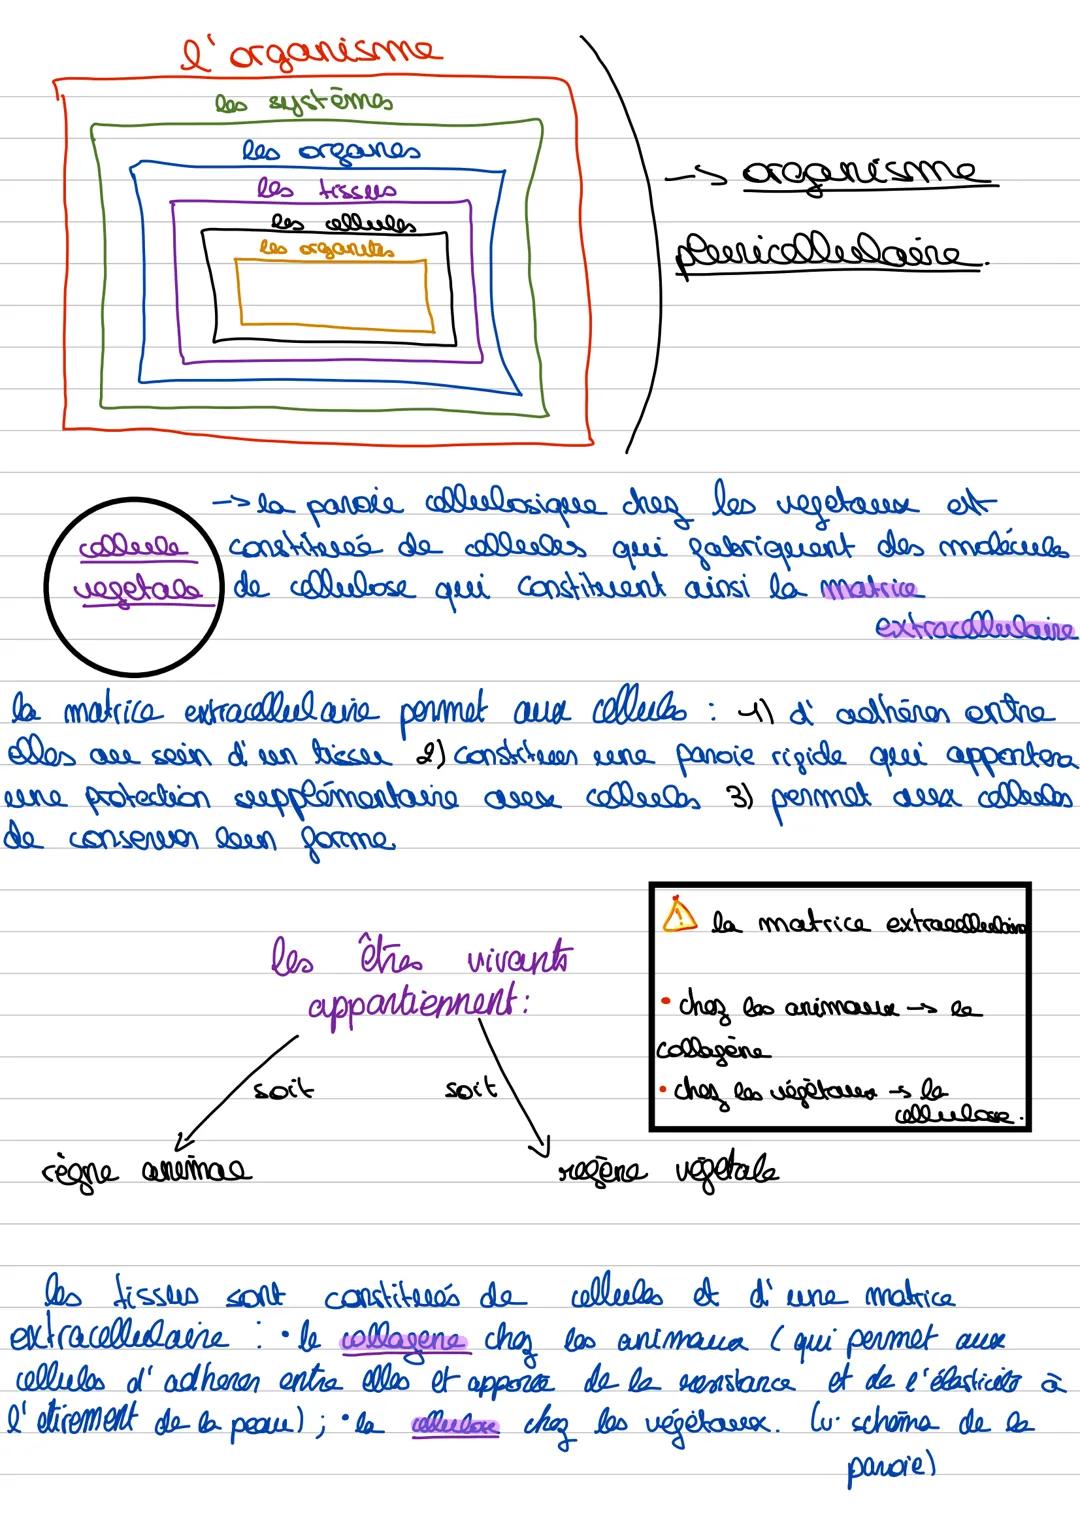 l'organisme
les systèmes
les organes
les tissus
les cellules
les organites
-> organisme
pluricellulaire.
cellule
vegetale
-> la paroie cellulosique chez les vegetaux est
constitueé de cellules qui fabriquent des molécules
de cellulose qui constituent ainsi la matrice
extracellulaire
la matrice extracellulaire permet aux cellules : 1) d'adhérer entre
elles au sein d'un tissu 2) constituer une paroie rigide qui apportera
une protection supplémentaire aux cellules 3) permet aux cellules
de conserver leur forme.
⚠ la matrice extracellulaire
• chez les animaux -> le
collagène
• chez les végétaux -> la
cellulose.
les êtres vivants
appartiennent :
soit soit
règne animal regène végétale
les tissus sont constitués de cellules et d'une matrice
extracellulaire : • le collagene chez les animaux ( qui permet aux
cellules d'adherer entre elles et apporte de la resistance et de l'élasticité à
l'étirement de la peau) ; • la cellulose chez les végétaux. (v. schéma de la
paroie)